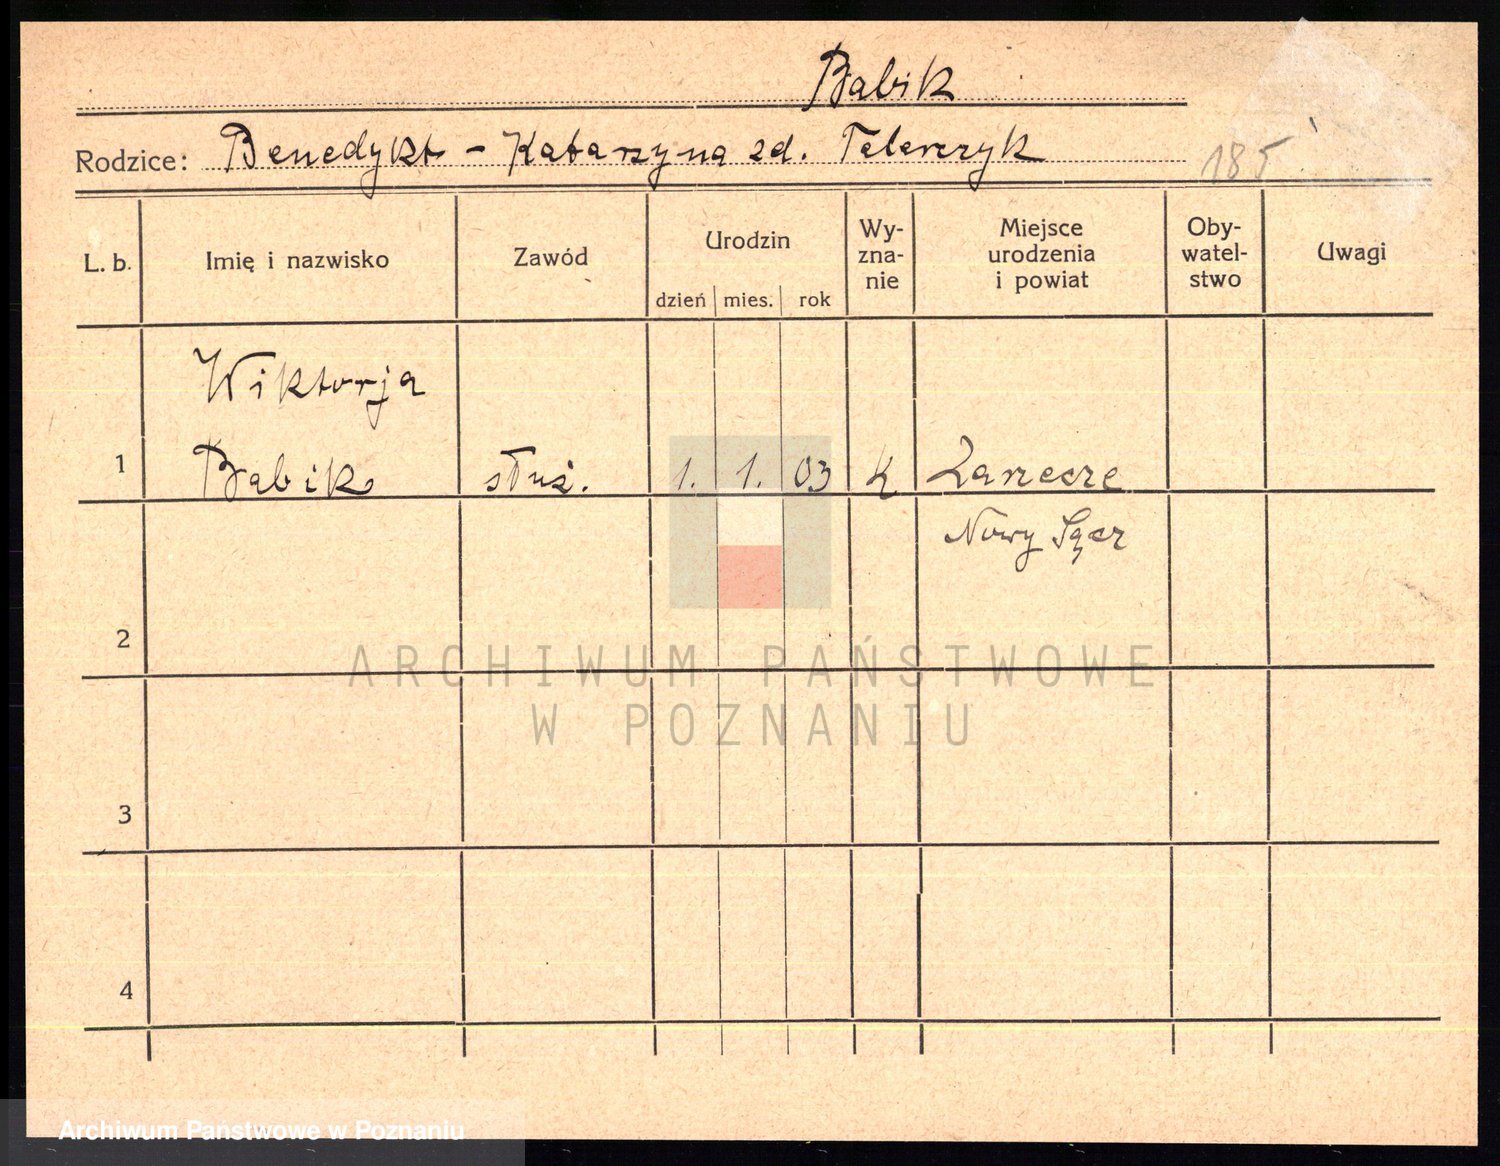 Babik
Rodzice: Benedykt - Katarzyna zd. Telerczyk
185
L. b. Imię i nazwisko Zawód Urodzin dzień mies. rok Wy-zna-nie Miejsce urodzenia i powiat Oby-watel-stwo Uwagi
Wiktorja
1 Babik służ. 1. 1. 03 k Zarzecze
Nowy Sącz
2
ARCHIWUM PAŃSTWOWE
W POZNANIU
3
4
Archiwum Państwowe w Poznaniu